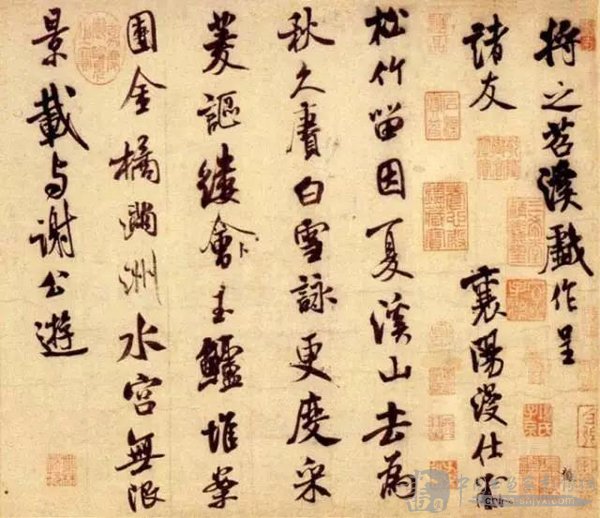 將之苕溪戲作呈
諸友 襄陽漫仕黻
松竹留因夏溪山去為
秋久賡白雪詠更度采
菱謳縷會卜玉鱸堆案
團金橘滿洲水宮無限
景載与謝公遊